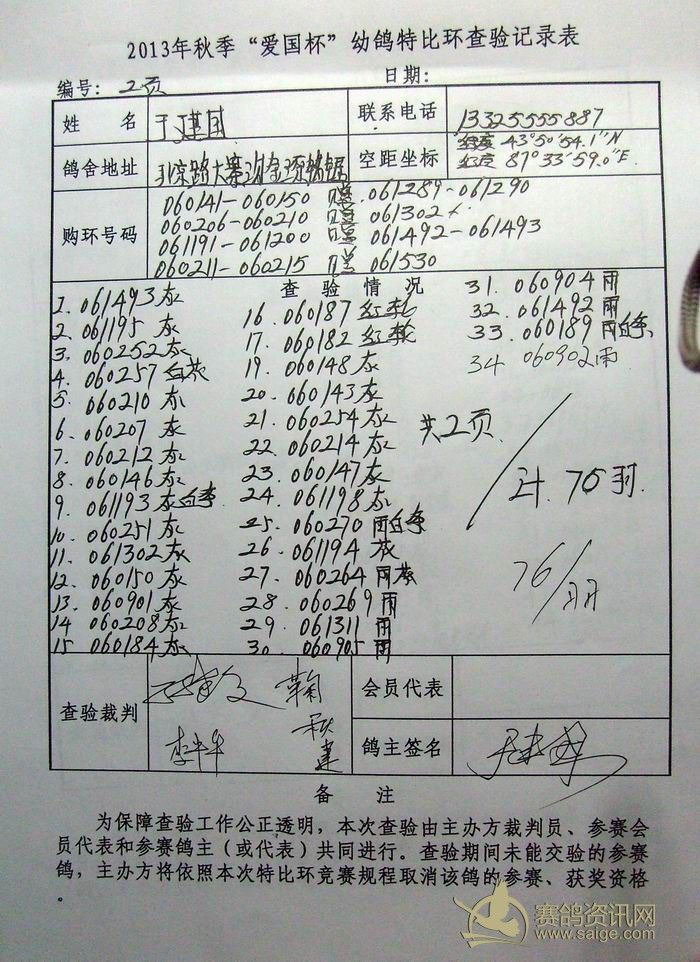 2013年秋季“爱国杯”幼鸽特比环查验记录表
编号: 2页 日期:
姓 名 于建国 联系电话 13325555887
鸽舍地址 北京路大寨沟 空距坐标 纬度 43°50′54.1″N
经度 87°33′59.0″E
购环号码 060141-060150 061289-061290
060206-060210 061302
061191-061200 061492-061493
060211-060215 061530
查 验 情 况
1. 061493 灰
2. 061195 灰
3. 060252 灰
4. 060257 白花
5. 060210 灰
6. 060207 灰
7. 060212 灰
8. 060146 灰
9. 061193 灰白条
10. 060251 灰
11. 061302 灰
12. 060150 灰
13. 060901 灰
14 060208 灰
15 060184 灰
16. 060187 红轮
17. 060182 红轮
19. 060148 灰
20. 060143 灰
21. 060254 灰
22. 060214 灰
23. 060147 灰
24. 061198 灰
25. 060270 雨白条
26. 061194 花
27. 060264 雨花
28. 060269 雨
29. 061311 雨
30. 060905 雨
31. 060904 雨
32. 061492 雨
33. 060189 雨白条
34 060902 雨
共2页
计. 75羽.
76/羽
查验裁判 鞠秋建
李
会员代表
鸽主签名
备 注
为保障查验工作公正透明，本次查验由主办方裁判员、参赛会
员代表和参赛鸽主（或代表）共同进行。查验期间未能交验的参赛
鸽，主办方将依照本次特比环竞赛规程取消该鸽的参赛、获奖资格
。
赛鸽资讯网
www.saige.com